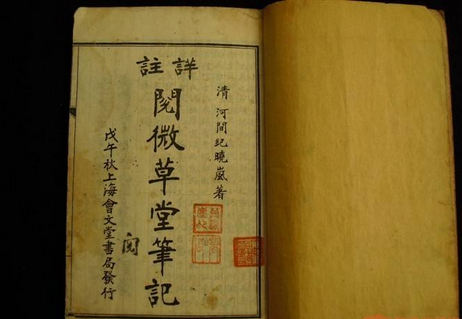 清河間紀曉嵐著
詳註
閱微草堂筆記
戊午秋上海會文堂書局發行
閱